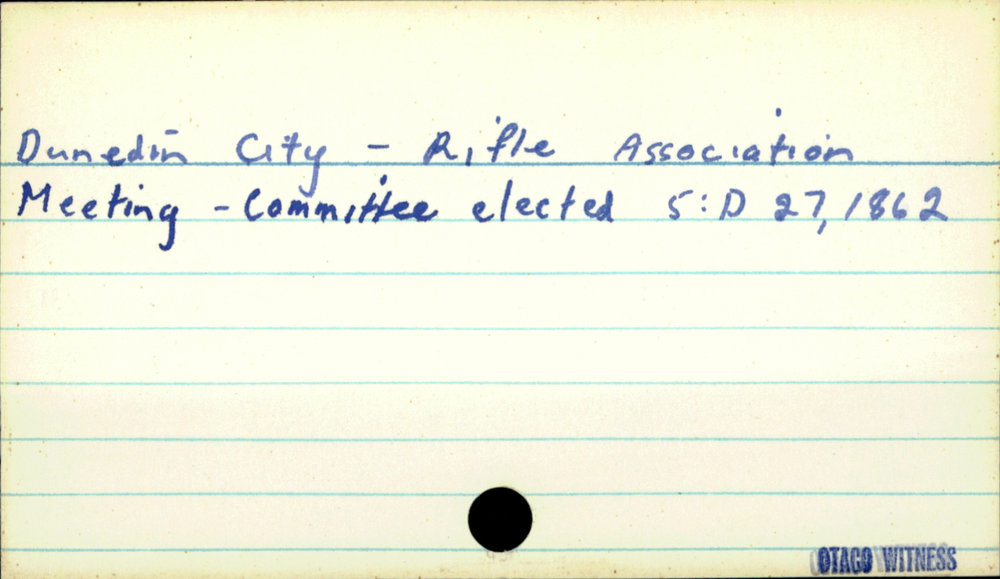 Dunedin City - Rifle Association
Meeting - Committee elected 5:D 27, 1862
OTAGO WITNESS